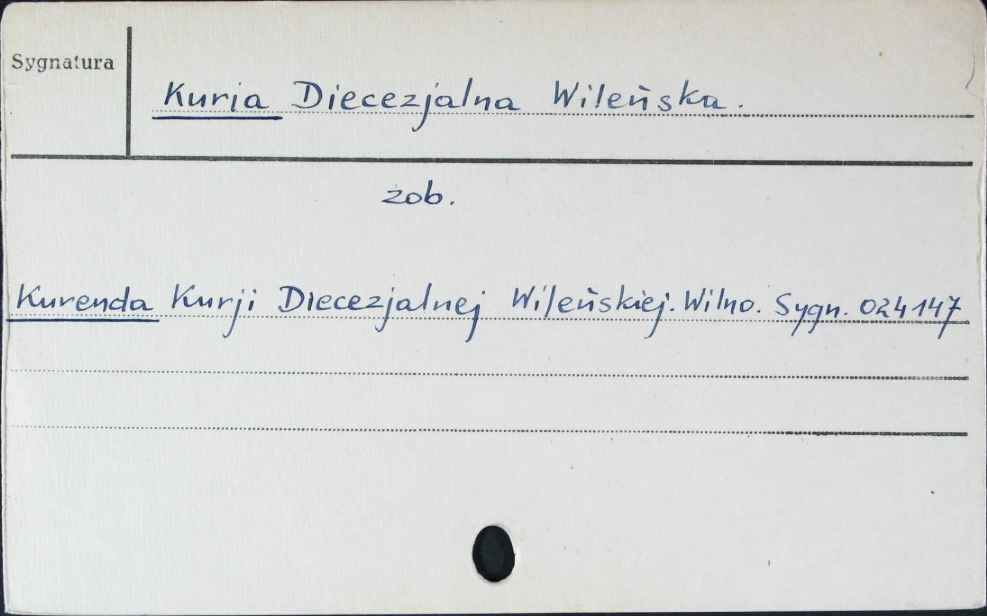 Sygnatura
Kuria Diecezjalna Wileńska.
zob.
Kurenda Kurji Diecezjalnej Wileńskiej. Wilno. Sygn. 024147